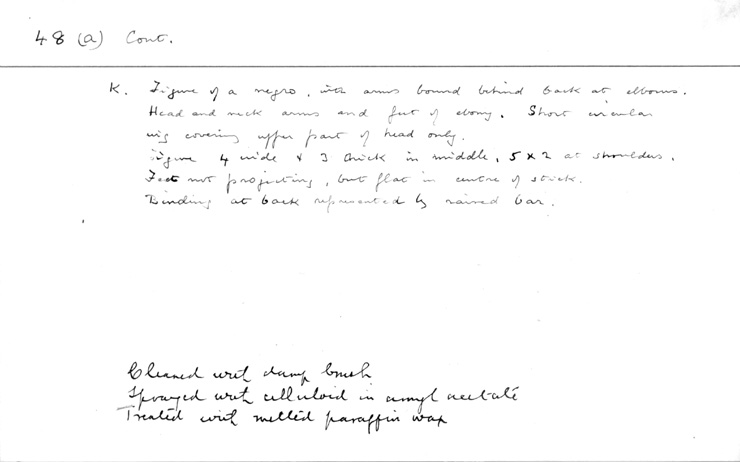 48 (a) Cont.
K. Figure of a negro, with arms bound behind back at elbows.
Head and neck arms and feet of ebony. Short circular
wig covering upper part of head only.
Figure 4 wide & 3 thick in middle, 5 x 2 at shoulders.
Feet not projecting, but flat in centre of stick.
Binding at back represented by raised bar.
Cleaned with damp brush
Sprayed with celluloid in amyl acetate
Treated with melted paraffin wax